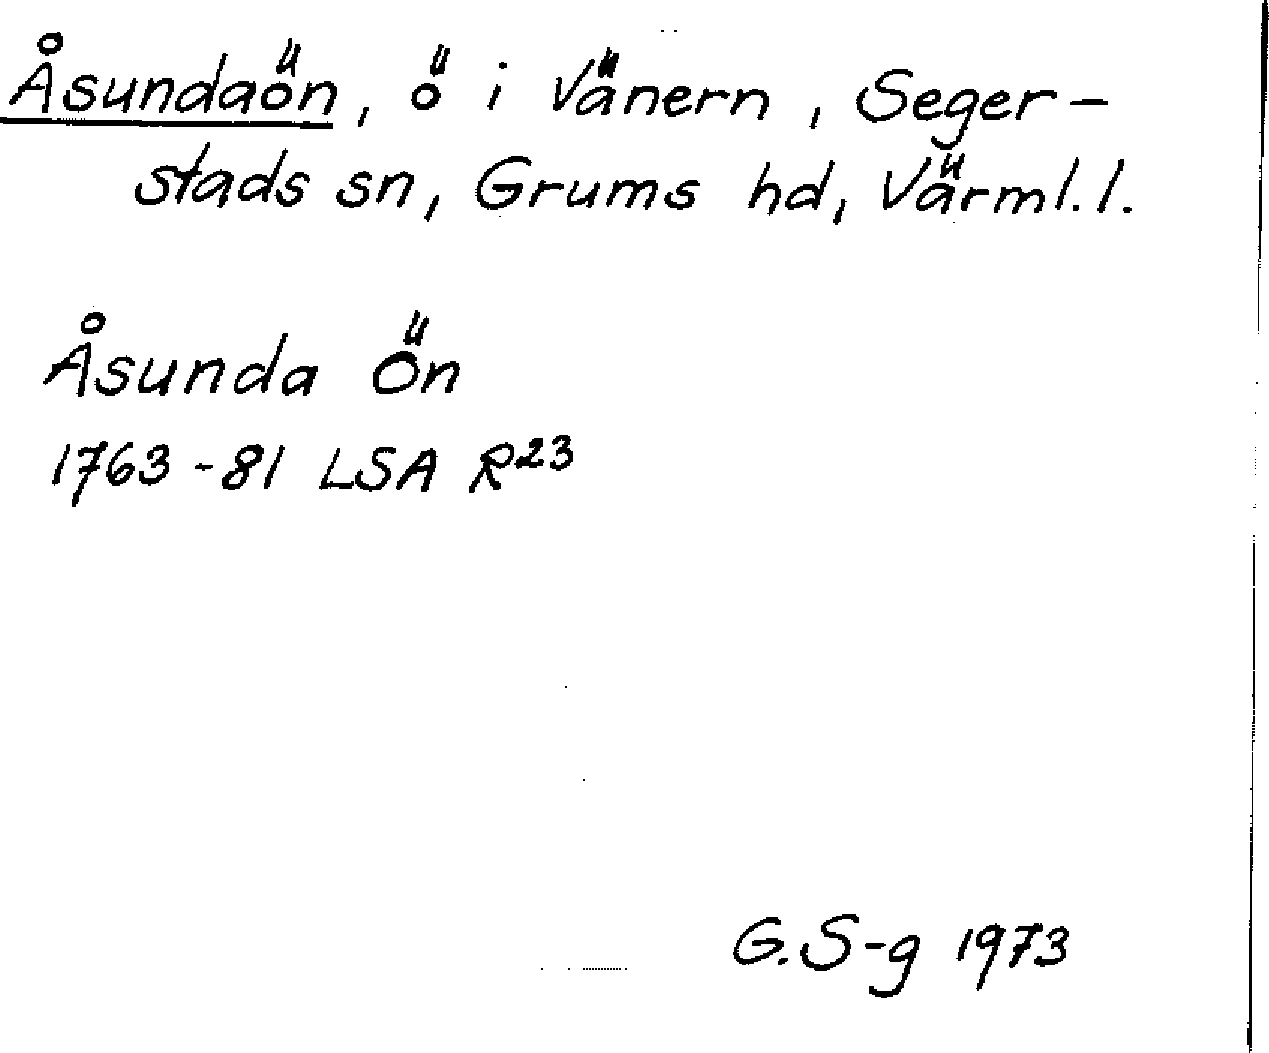 Åsundaön, ö i Vänern, Seger-
stads sn, Grums hd, Värml. l.
Åsunda Ön
1763-81 LSA R23
G. S-g 1973